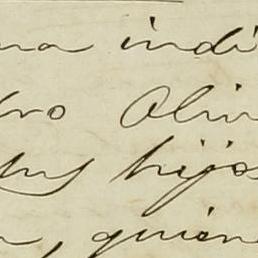 na indi
dro Oliv
sus hijos
n, quien